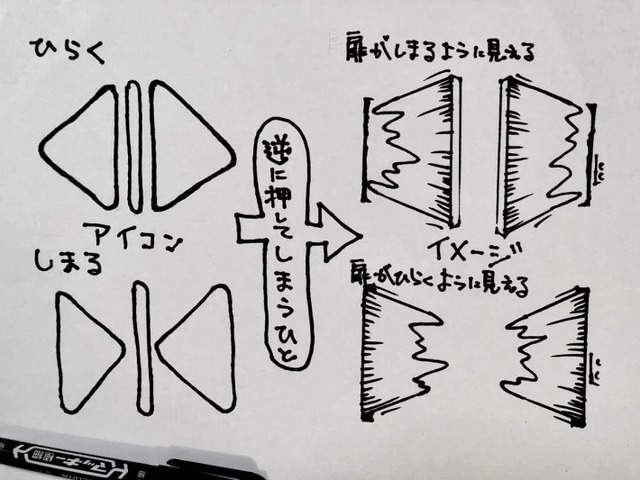 ひらく
アイコン
しまる
逆に押してしまうひと
扉がしまるように見える
イメージ
扉がひらくように見える
マッキー極細